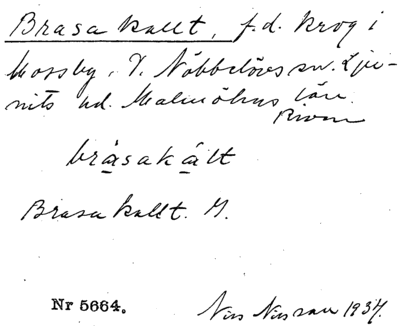 Brasa kallt, f.d. krog i
Mossby, V. Nöbbelövs sn. Lju-
nits hd. Malmöhus län.
Riven
bråsakált
Brasa kallt. M.
Nr 5664. Nils Nilsson 1937.